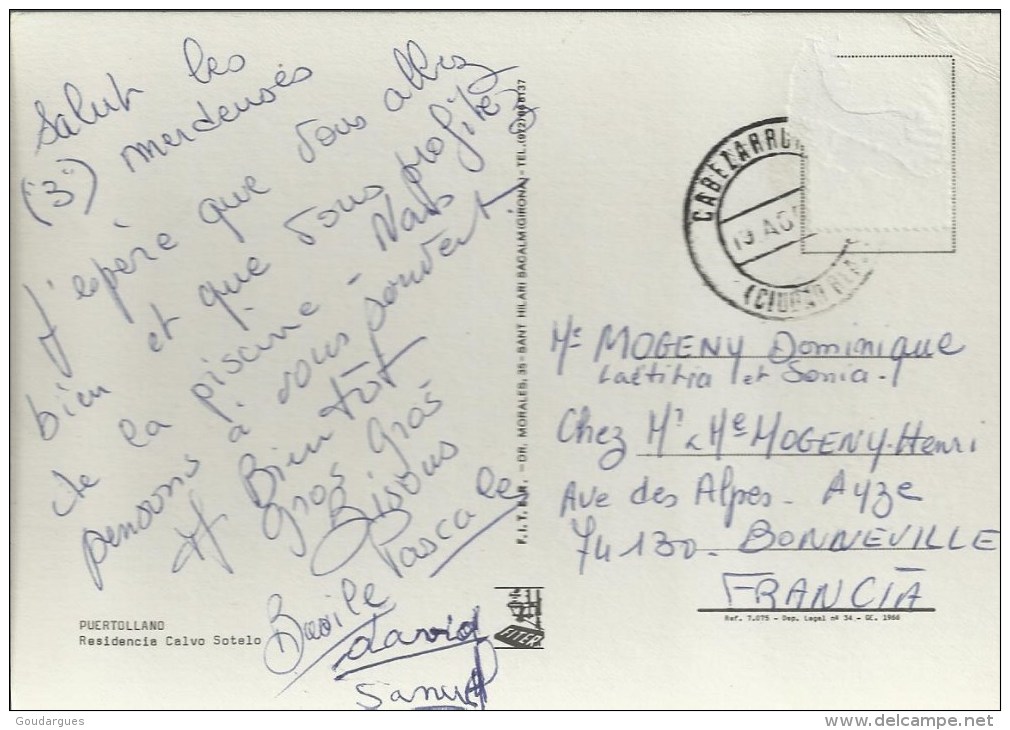 Salut les
(3) merdeuses
J'espère que vous allez
bien et que vous profitez
de la piscine - Nous
pensons à vous souvent
A Bientôt
gros gros
Bisous
Pascale
Basile
david
Samuel
PUERTOLLANO
Residencia Calvo Sotelo
F.I.T.E.R. - DR. MORALES, 35 - SANT HILARI SACALM (GIRONA) - TEL. (972) 868137
FITER
CABEZARRU
19 AGO
(CIUDAD REAL
Me MOGENY Dominique
Laëtitia et Sonia.
Chez Mr & Me MOGENY-Henri
Ave des Alpes - Ayze
74130 - BONNEVILLE
FRANCIA
Ref. 7.075 - Dep. Legal nº 34 - GE. 1966
Goudargues
delcampe.net